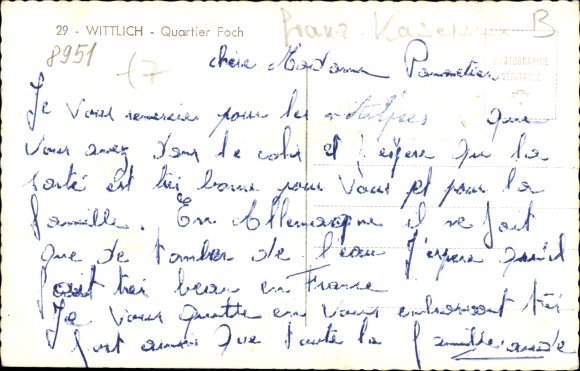 29 - WITTLICH - Quartier Foch
franz. Kaserne B
8951
chère Madame
Je vous remercie pour les que
vous avez dans le colis et j'espere que la
santé est très bonne pour vous et pour la
famille. En Allemagne il ne fait
que de tomber de l'eau j'espere qu'il
fait très beau en France
Je vous quitte en vous embrassant très
fort ainsi que toute la famille